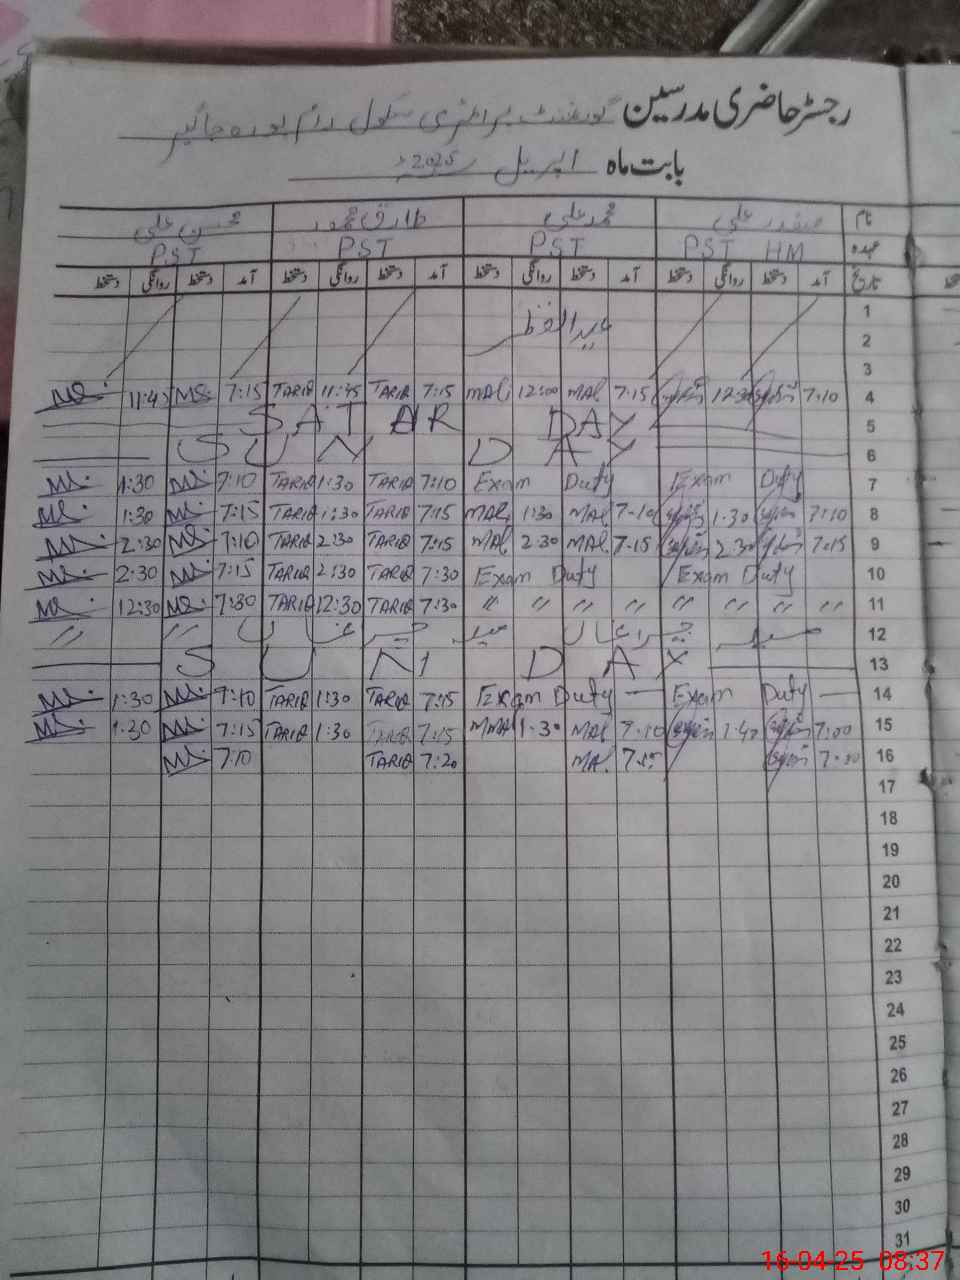 رجسٹر حاضری مدرسین گورنمنٹ پرائمری سکول
بابت ماہ اپریل 2025ء
نام صفدر علی محمد علی طارق محمود محسن علی
عہدہ PST HM PST PST PST
تاریخ آمد دستخط روانگی دستخط آمد دستخط روانگی دستخط آمد دستخط روانگی دستخط آمد دستخط روانگی دستخط
1
عیدالفطر
2
3
11:45 7:15 TARIQ 11:45 TARIQ 7:15 MALi 12:00 MAL 7:15 7:10 4
SATARDAY 5
SUNDAY 6
1:30 7:10 TARIQ 1:30 TARIQ 7:10 Exam Duty Exam Duty 7
1:30 7:15 TARIQ 1:30 TARIQ 7:15 MAL 1:30 MAL 7-10 1.30 7:10 8
2:30 7:10 TARIQ 2:30 TARIQ 7:15 MAL 2:30 MAL 7-15 2:30 7:15 9
2:30 7:15 TARIQ 2:30 TARIQ 7:30 Exam Duty Exam Duty 10
12:30 7:30 TARIQ 12:30 TARIQ 7:30 〃 〃 〃 〃 〃 〃 〃 〃 11
〃 〃 میلہ چراغاں میلہ چراغاں 12
SUN DAY 13
1:30 7:10 TARIQ 1:30 TARIQ 7:15 Exam Duty — Exam Duty — 14
1:30 7:15 TARIQ 1:30 TARIQ 7:15 1:30 MAL 7:10 7:00 15
7:10 TARIQ 7:20 MA. 16
17
18
19
20
21
22
23
24
25
26
27
28
29
30
31
16-04-25 08:37